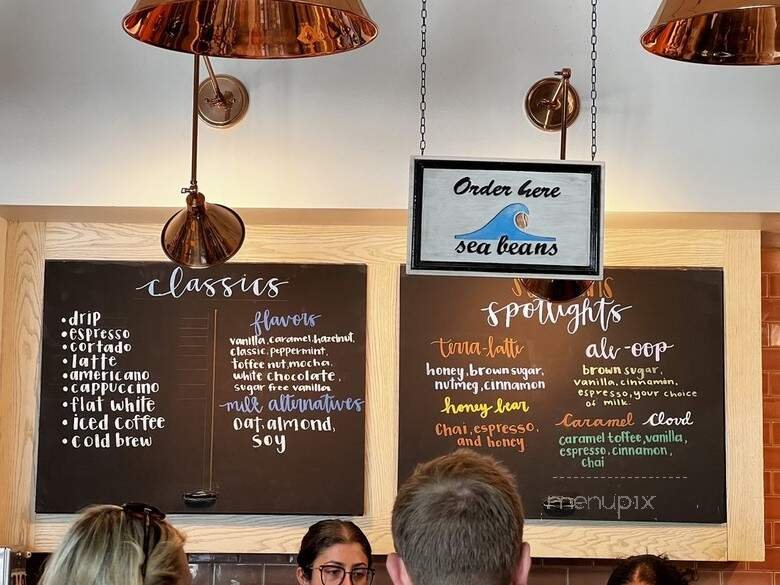 Order here
sea beans
classics
• drip
• espresso
• cortado
• latte
• americano
• cappuccino
• flat white
• iced coffee
• cold brew
flavors
vanilla, caramel, hazelnut,
classic, peppermint,
toffee nut, mocha,
white chocolate,
sugar free vanilla
milk alternatives
oat, almond,
soy
spotlights
terra-latte
honey, brown sugar,
nutmeg, cinnamon
honey bear
Chai, espresso,
and honey
ale-oop
brown sugar,
vanilla, cinnamon,
espresso, your choice
of milk.
Caramel Cloud
caramel toffee, vanilla,
espresso, cinnamon,
chai
menupix